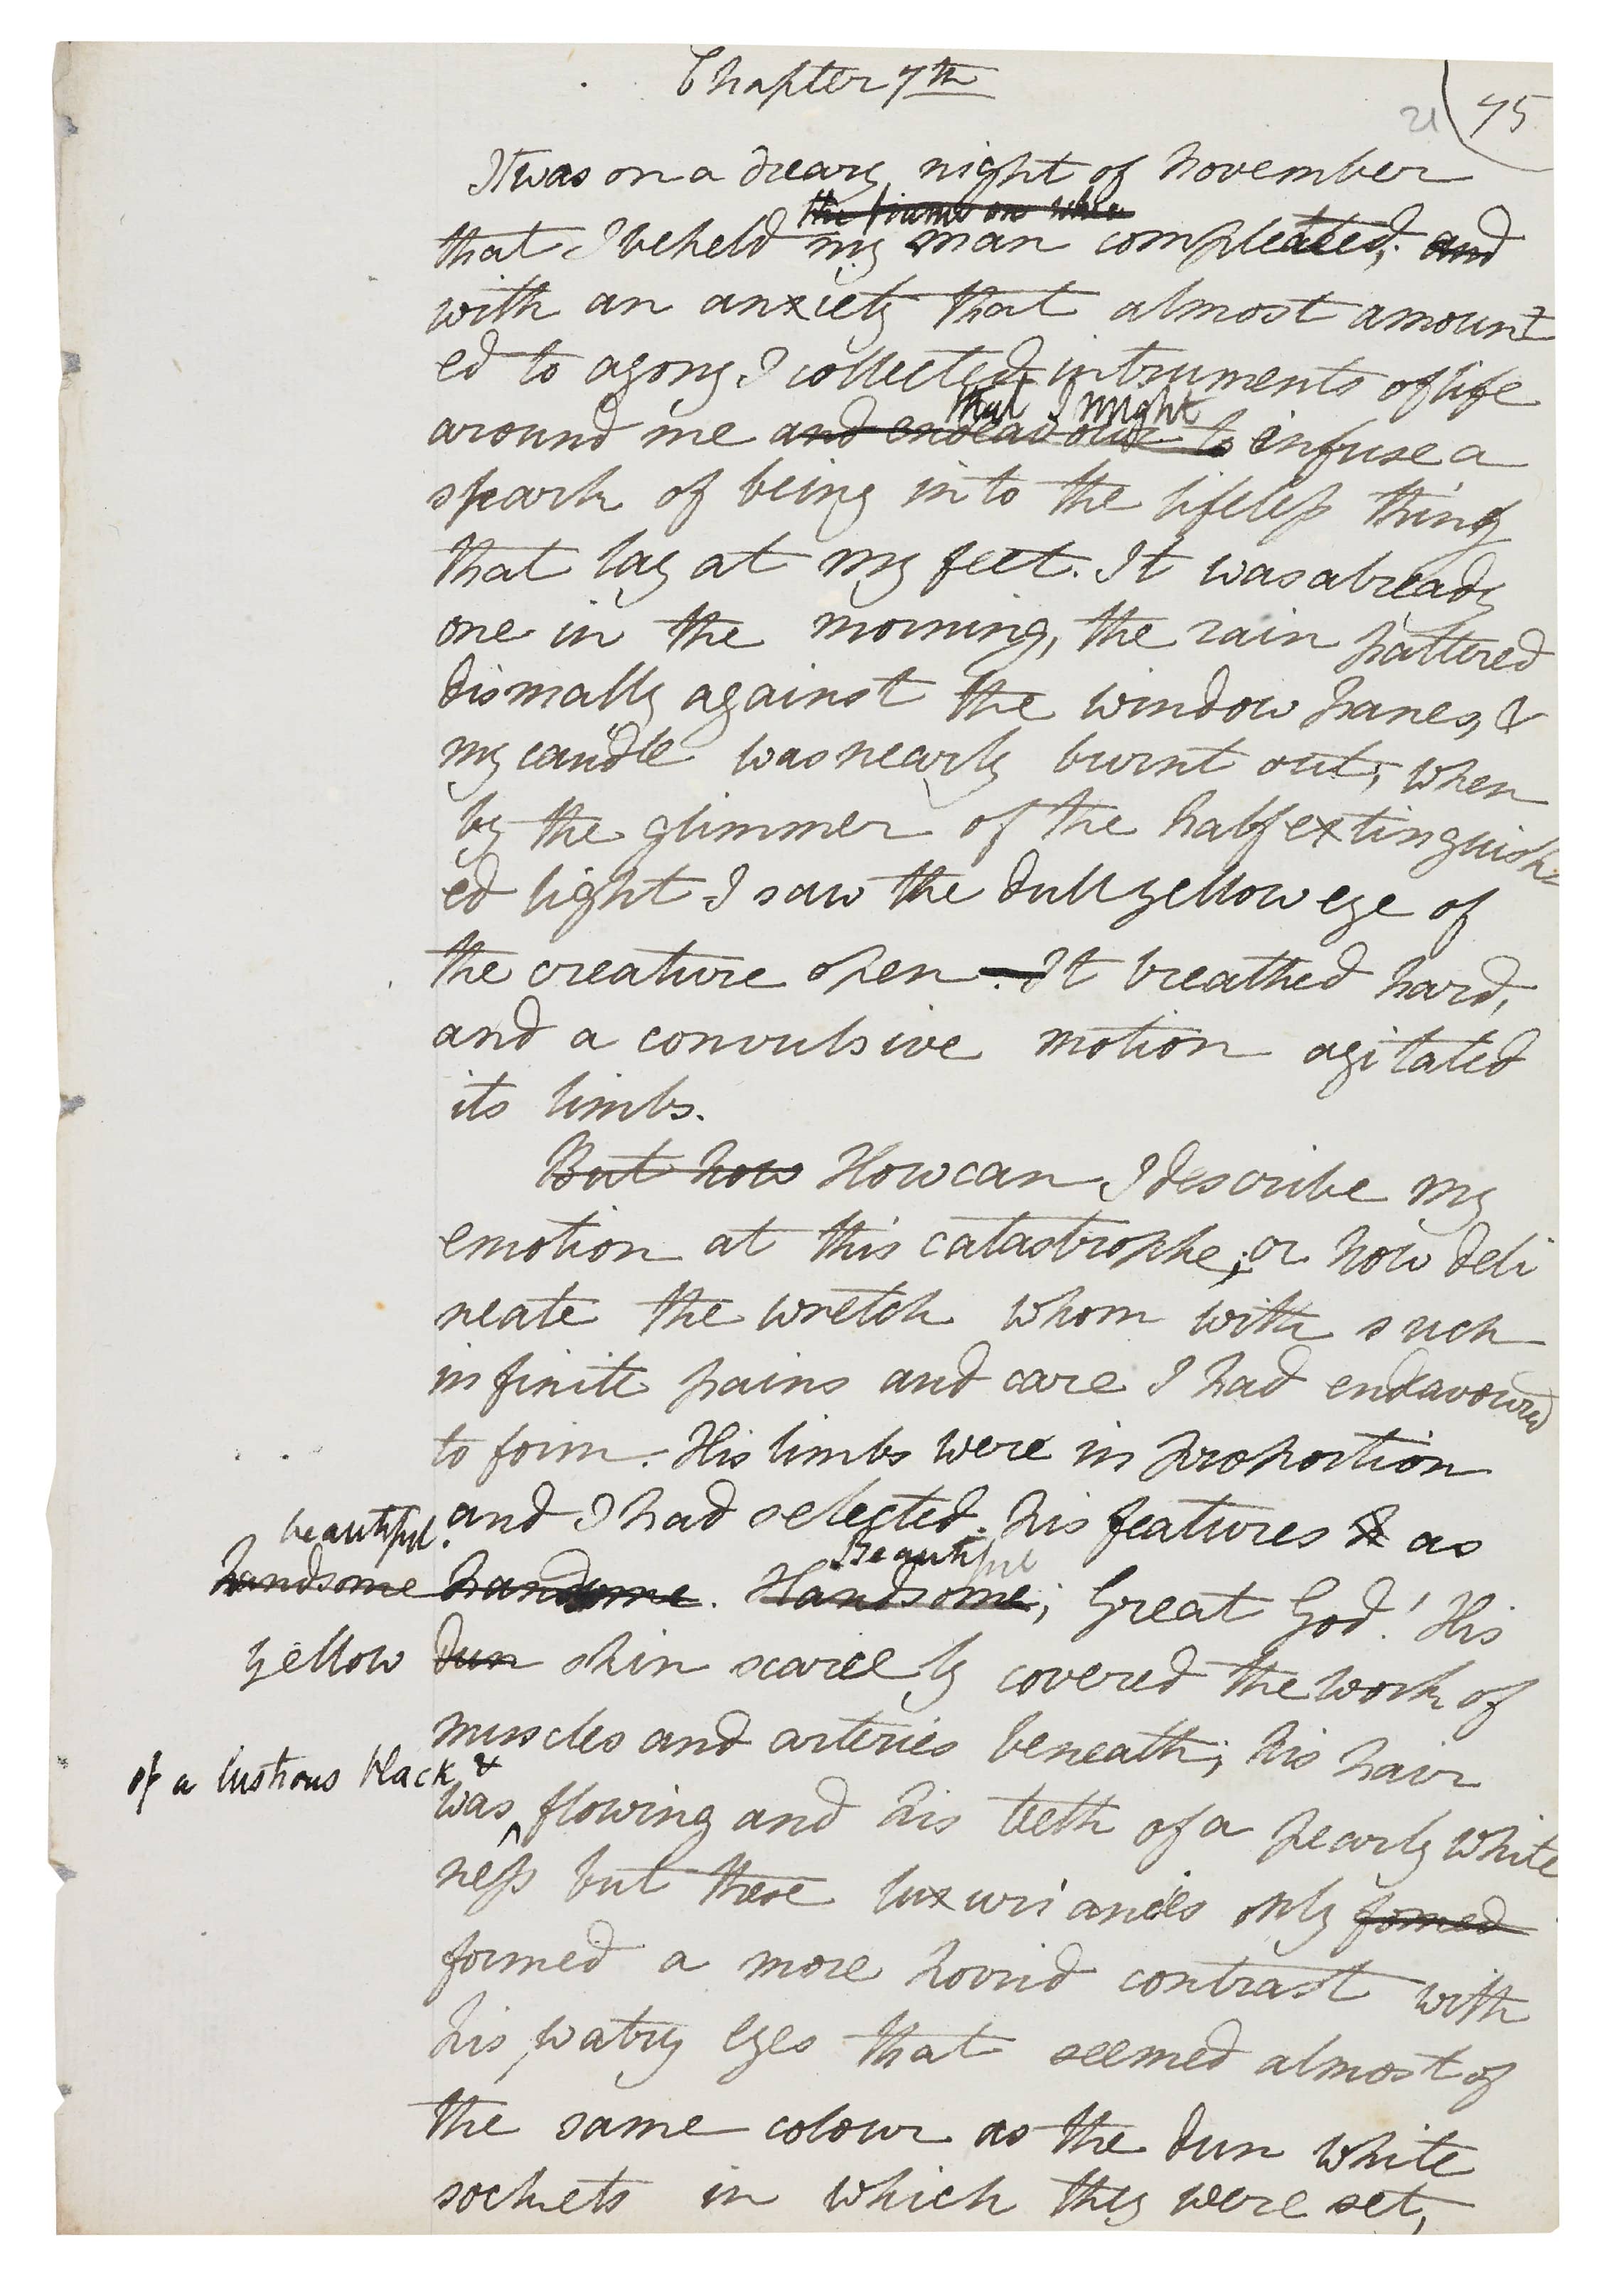 Chapter 7th
21 75
It was on a dreary night of November
the frame on whic
that I beheld my man compleated; and
with an anxiety that almost amount
ed to agony I collected intruments of life
that I might
around me and endeavour to infuse a
spark of being into the lifeless thing
that lay at my feet. It was already
one in the morning, the rain pattered
dismally against the window panes, &
my candle was nearly burnt out, when
by the glimmer of the half extinguish-
ed light I saw the dull yellow eye of
the creature open—. It breathed hard,
and a convulsive motion agitated
its limbs.
But how How can I describe my
emotion at this catastrophe; or how deli
neate the wretch whom with such
infinite pains and care I had endavoured
to form. His limbs were in proportion
and I had selected his features & as
beautiful.
Beautiful
handsome handsome. Handsome; Great God! His
yellow dun skin scarcely covered the work of
muscles and arteries beneath; his hair
of a lustrous black &
was ^ flowing and his teeth of a pearly white
ness but these luxuriancies only fomed
formed a more horrid contrast with
his watry eyes that seemed almost of
the same colour as the dun white
sockets in which they were set,